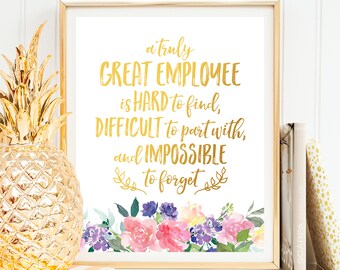 a truly
GREAT EMPLOYEE
is HARD to find,
DIFFICULT to part with,
and IMPOSSIBLE
to forget